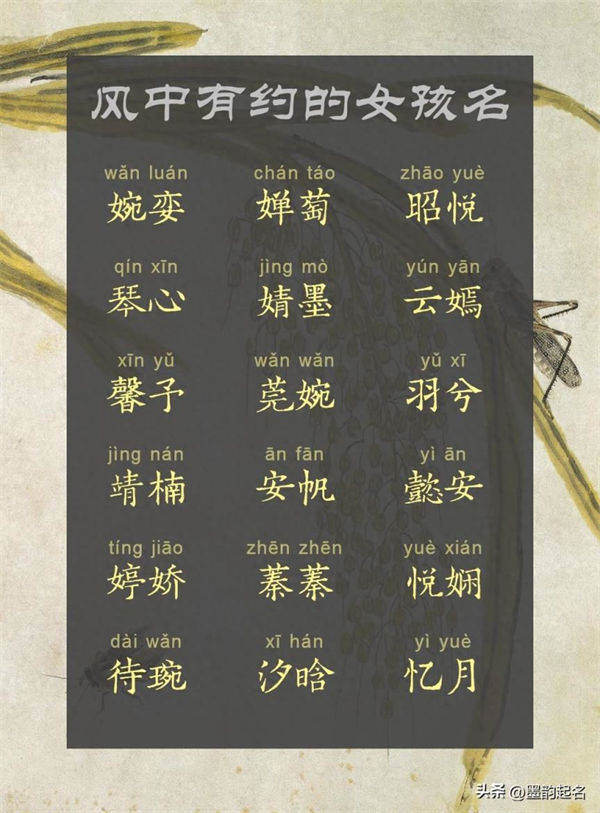 风中有约的女孩名
wǎn luán chán táo zhāo yuè
婉娈 婵萄 昭悦
qín xīn jìng mò yún yān
琴心 婧墨 云嫣
xīn yǔ wǎn wǎn yǔ xī
馨予 莞婉 羽兮
jìng nán ān fān yì ān
靖楠 安帆 懿安
tíng jiāo zhēn zhēn yuè xián
婷娇 蓁蓁 悦娴
dài wǎn xī hán yì yuè
待琬 汐晗 忆月
头条 @墨韵起名